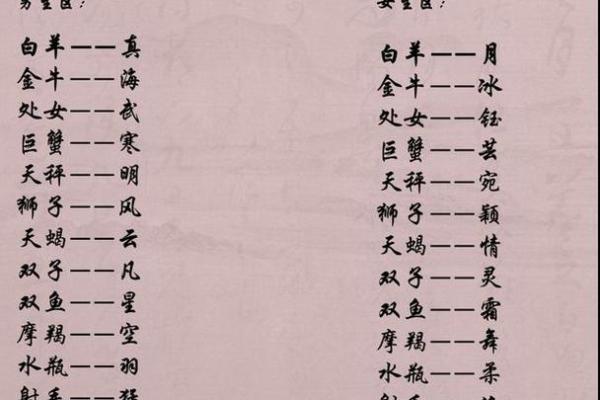 男生区：
白羊——真
金牛——海
处女——武
巨蟹——寒
天秤——明
狮子——风
天蝎——云
双子——凡
双鱼——星
摩羯——空
水瓶——羽
射手——
女生区：
白羊——月
金牛——冰
处女——钰
巨蟹——芸
天秤——宛
狮子——颖
天蝎——情
双子——灵
双鱼——霜
摩羯——舞
水瓶——柔
射手——